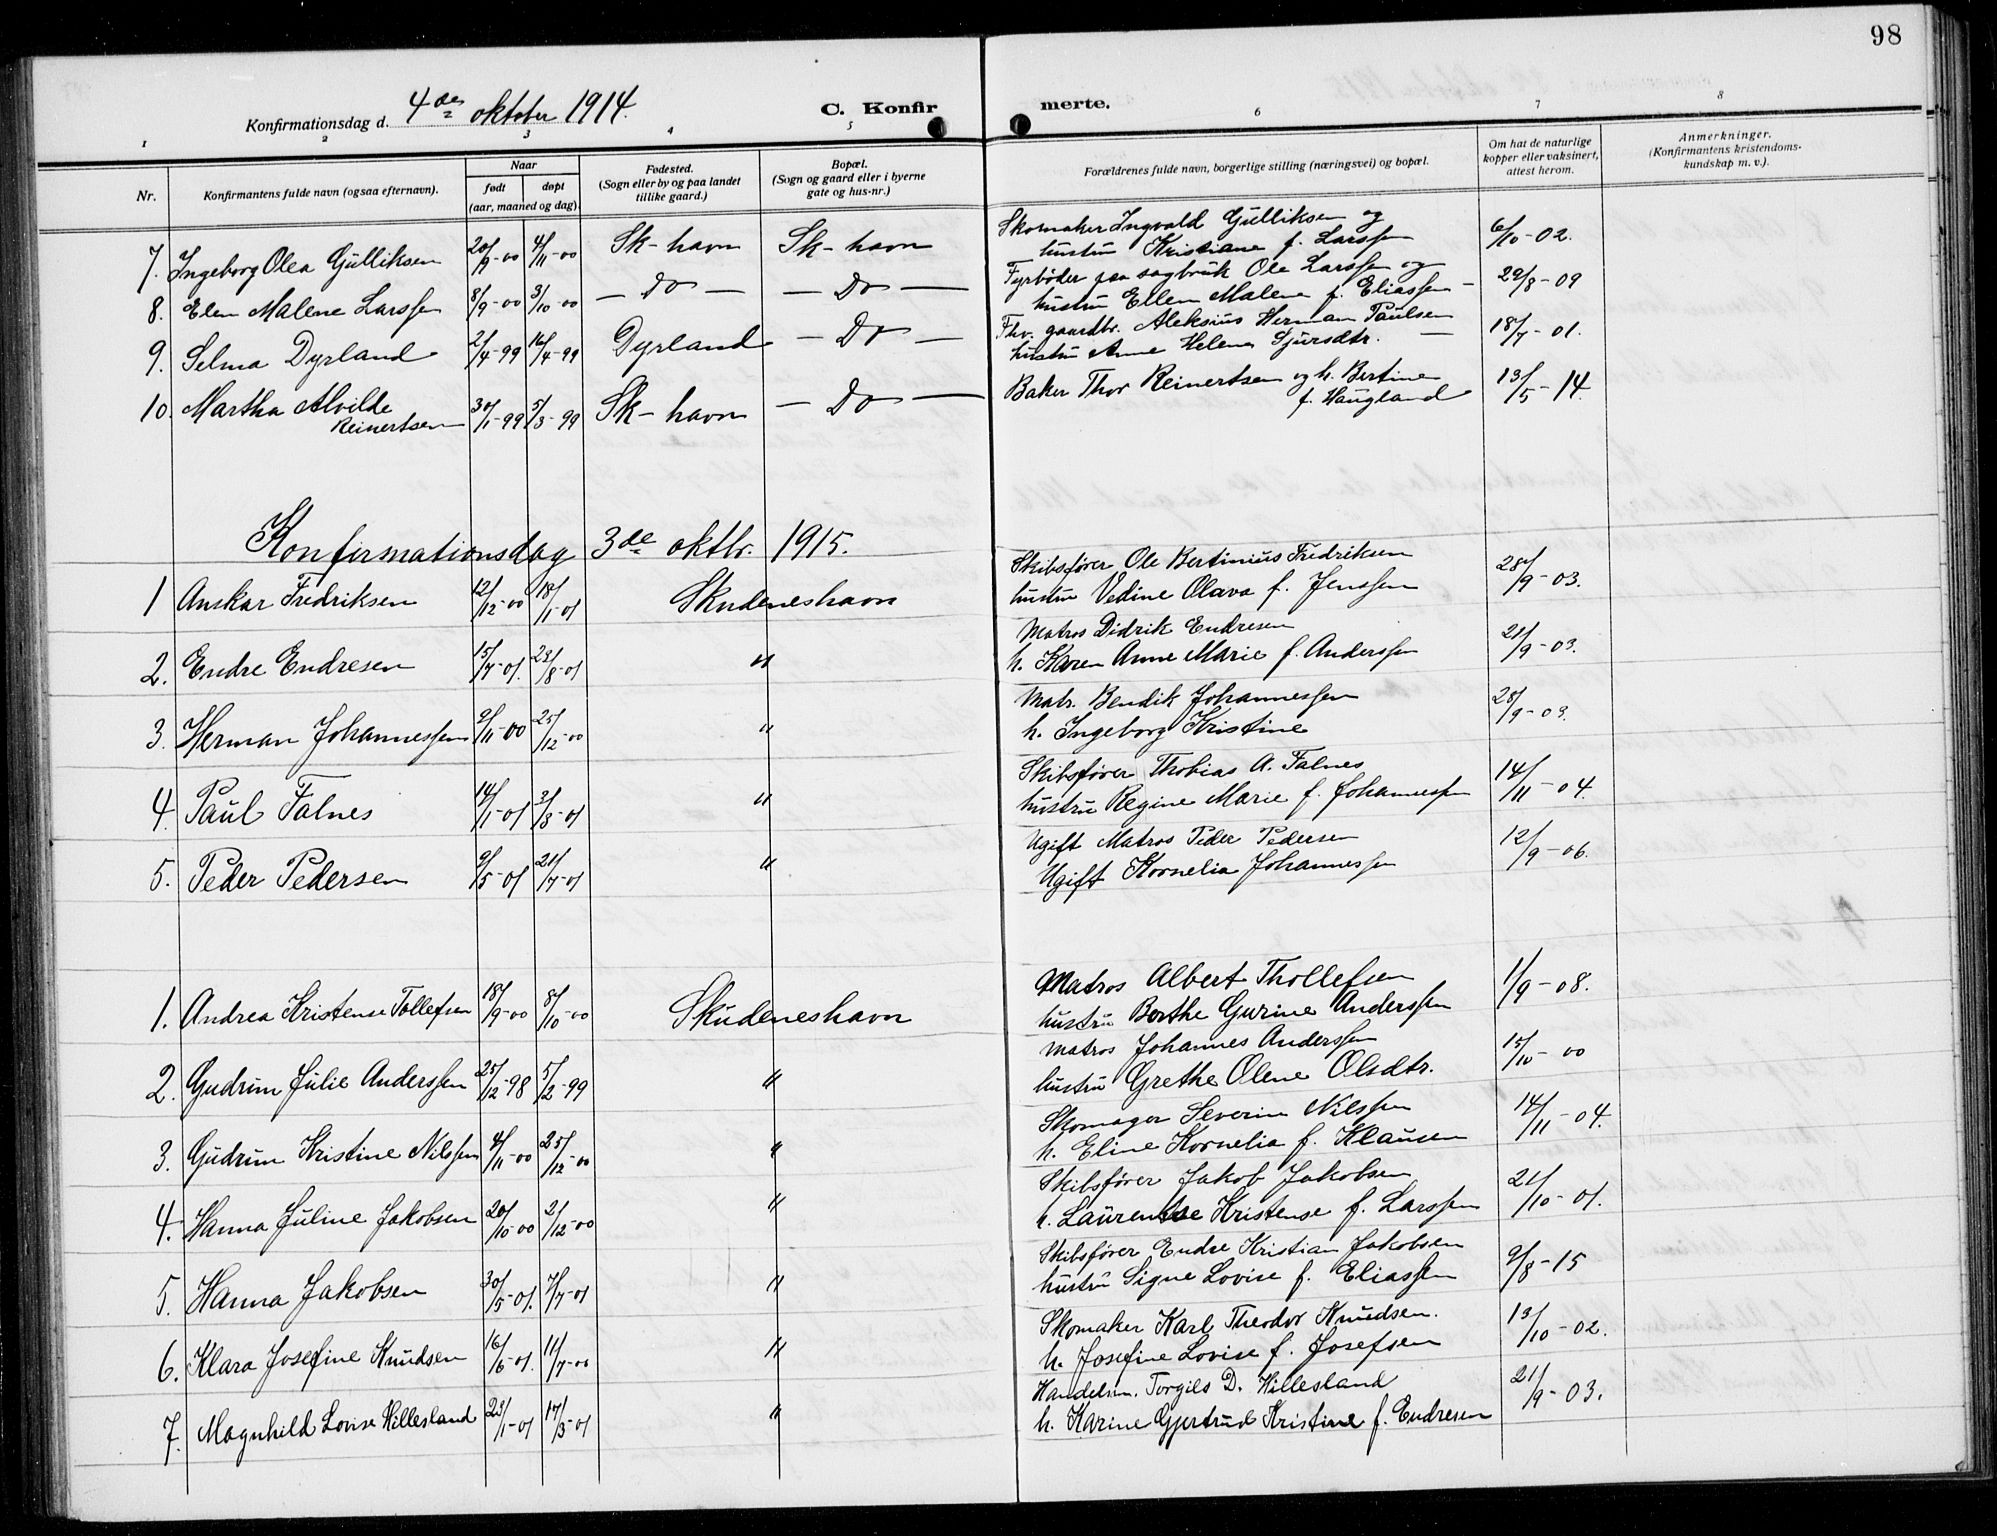 98
Konfirmationsdag d. 4de oktober 1914.
C. Konfirmerte.
1 2 3 4 5 6 7 8
Nr.
Konfirmantens fulde navn (ogsaa efternavn).
Naar
født døpt
(aar, maaned og dag)
Fødested.
(Sogn eller by og paa landet
tillike gaard.)
Bopæl.
(Sogn og gaard eller i byerne
gate og hus-nr.)
Forældrenes fulde navn, borgerlige stilling (næringsvei) og bopæl.
Om hat de naturlige
kopper eller vaksinert,
attest herom.
Anmerkninger.
(Konfirmantens kristendoms-
kundskap m. v.).
7. Ingeborg Olea Gulliksen 20/9-00 4/11-00 Sk-havn Sk-havn Skomaker Ingvald Gulliksen og
hustru Kristiane f. Larssen 6/10-02.
8. Elen Malene Larssen 8/9-00 3/10-00 — Do — — Do — Fyrbøder paa sagbruk Ole Larssen og
hustru Ellen Malene f. Eliassen — 29/8-09
9. Selma Dyrland 2/4-99 16/4-99 Dyrland — Do — Fhv. gaardbr. Aleksius Herman Paulsen
hustru Anne Helene Sjursdtr. — 18/7-01.
10. Martha Alvilde
Reinertsen 30/1-99 5/3-99 Sk-havn — Do — Baker Thor Reinertsen og h. Bertine
f. Haugland 13/5-14.
Konfirmationsdag 3de oktbr. 1915.
1 Anskar Fredriksen 12/12-00 18/1-01 Skudeneshavn Skibsfører Ole Bertinius Fredriksen
hustru Vedine Olava f. Jenssen 28/9-03.
2. Endre Endresen 15/7-01. 23/8-01 " Matros Didrik Endresen
h. Karen Anne Marie f. Anderssen 21/9-03.
3. Herman Johannessen 9/11-00 25/12-00 " Matr. Bendik Johannessen
h. Ingeborg Kristine 28/9-03.
4. Paul Falnes 14/1-01 3/3-01 " Skibsfører Thobias A. Falnes
hustru Regine Marie f. Johannessen 14/11-04.
5. Peder Pedersen 9/5-01 21/7-01 " Ugift Matros Peder Pedersen
Ugift Kornelia Johannessen 12/9-06.
1. Andrea Kristense Tollefsen 18/9-00 8/10-00 Skudeneshavn Matros Albert Thollefsen
hustru Berthe Gurine Anderssen 1/9-08.
2. Gudrun Julie Anderssen 25/12-98 5/2-99 " Matros Johannes Anderssen
hustru Grethe Olene Olsdtr. 15/10-00
3. Gudrun Kristine Nilssen 4/11-00 25/12-00 " Skomager Severin Nilssen
h. Eline Kornelia f. Klausen 14/11-04.
4. Hanna Juline Jakobsen 20/10-00 2/12-00 " Skibsfører Jakob Jakobsen
h. Laurentse Kristense f. Larssen 21/10-01.
5. Hanna Jakobsen 30/5-01. 7/7-01 " Skibsfører Endre Kristian Jakobsen
hustru Signe Lovise f. Eliassen 9/8-15
6. Klara Josefine Knudsen 16/6-01. 11/7-00 " Skomaker Karl Theodor Knudsen.
h. Josefine Lovise f. Josefsen 13/10-02.
7. Magnhild Lovise Hillesland 23/1-01 17/3-01 " Handelsm. Torgils D. Hillesland
h. Karine Gjertrud Kristine f. Endresen 21/9-03.